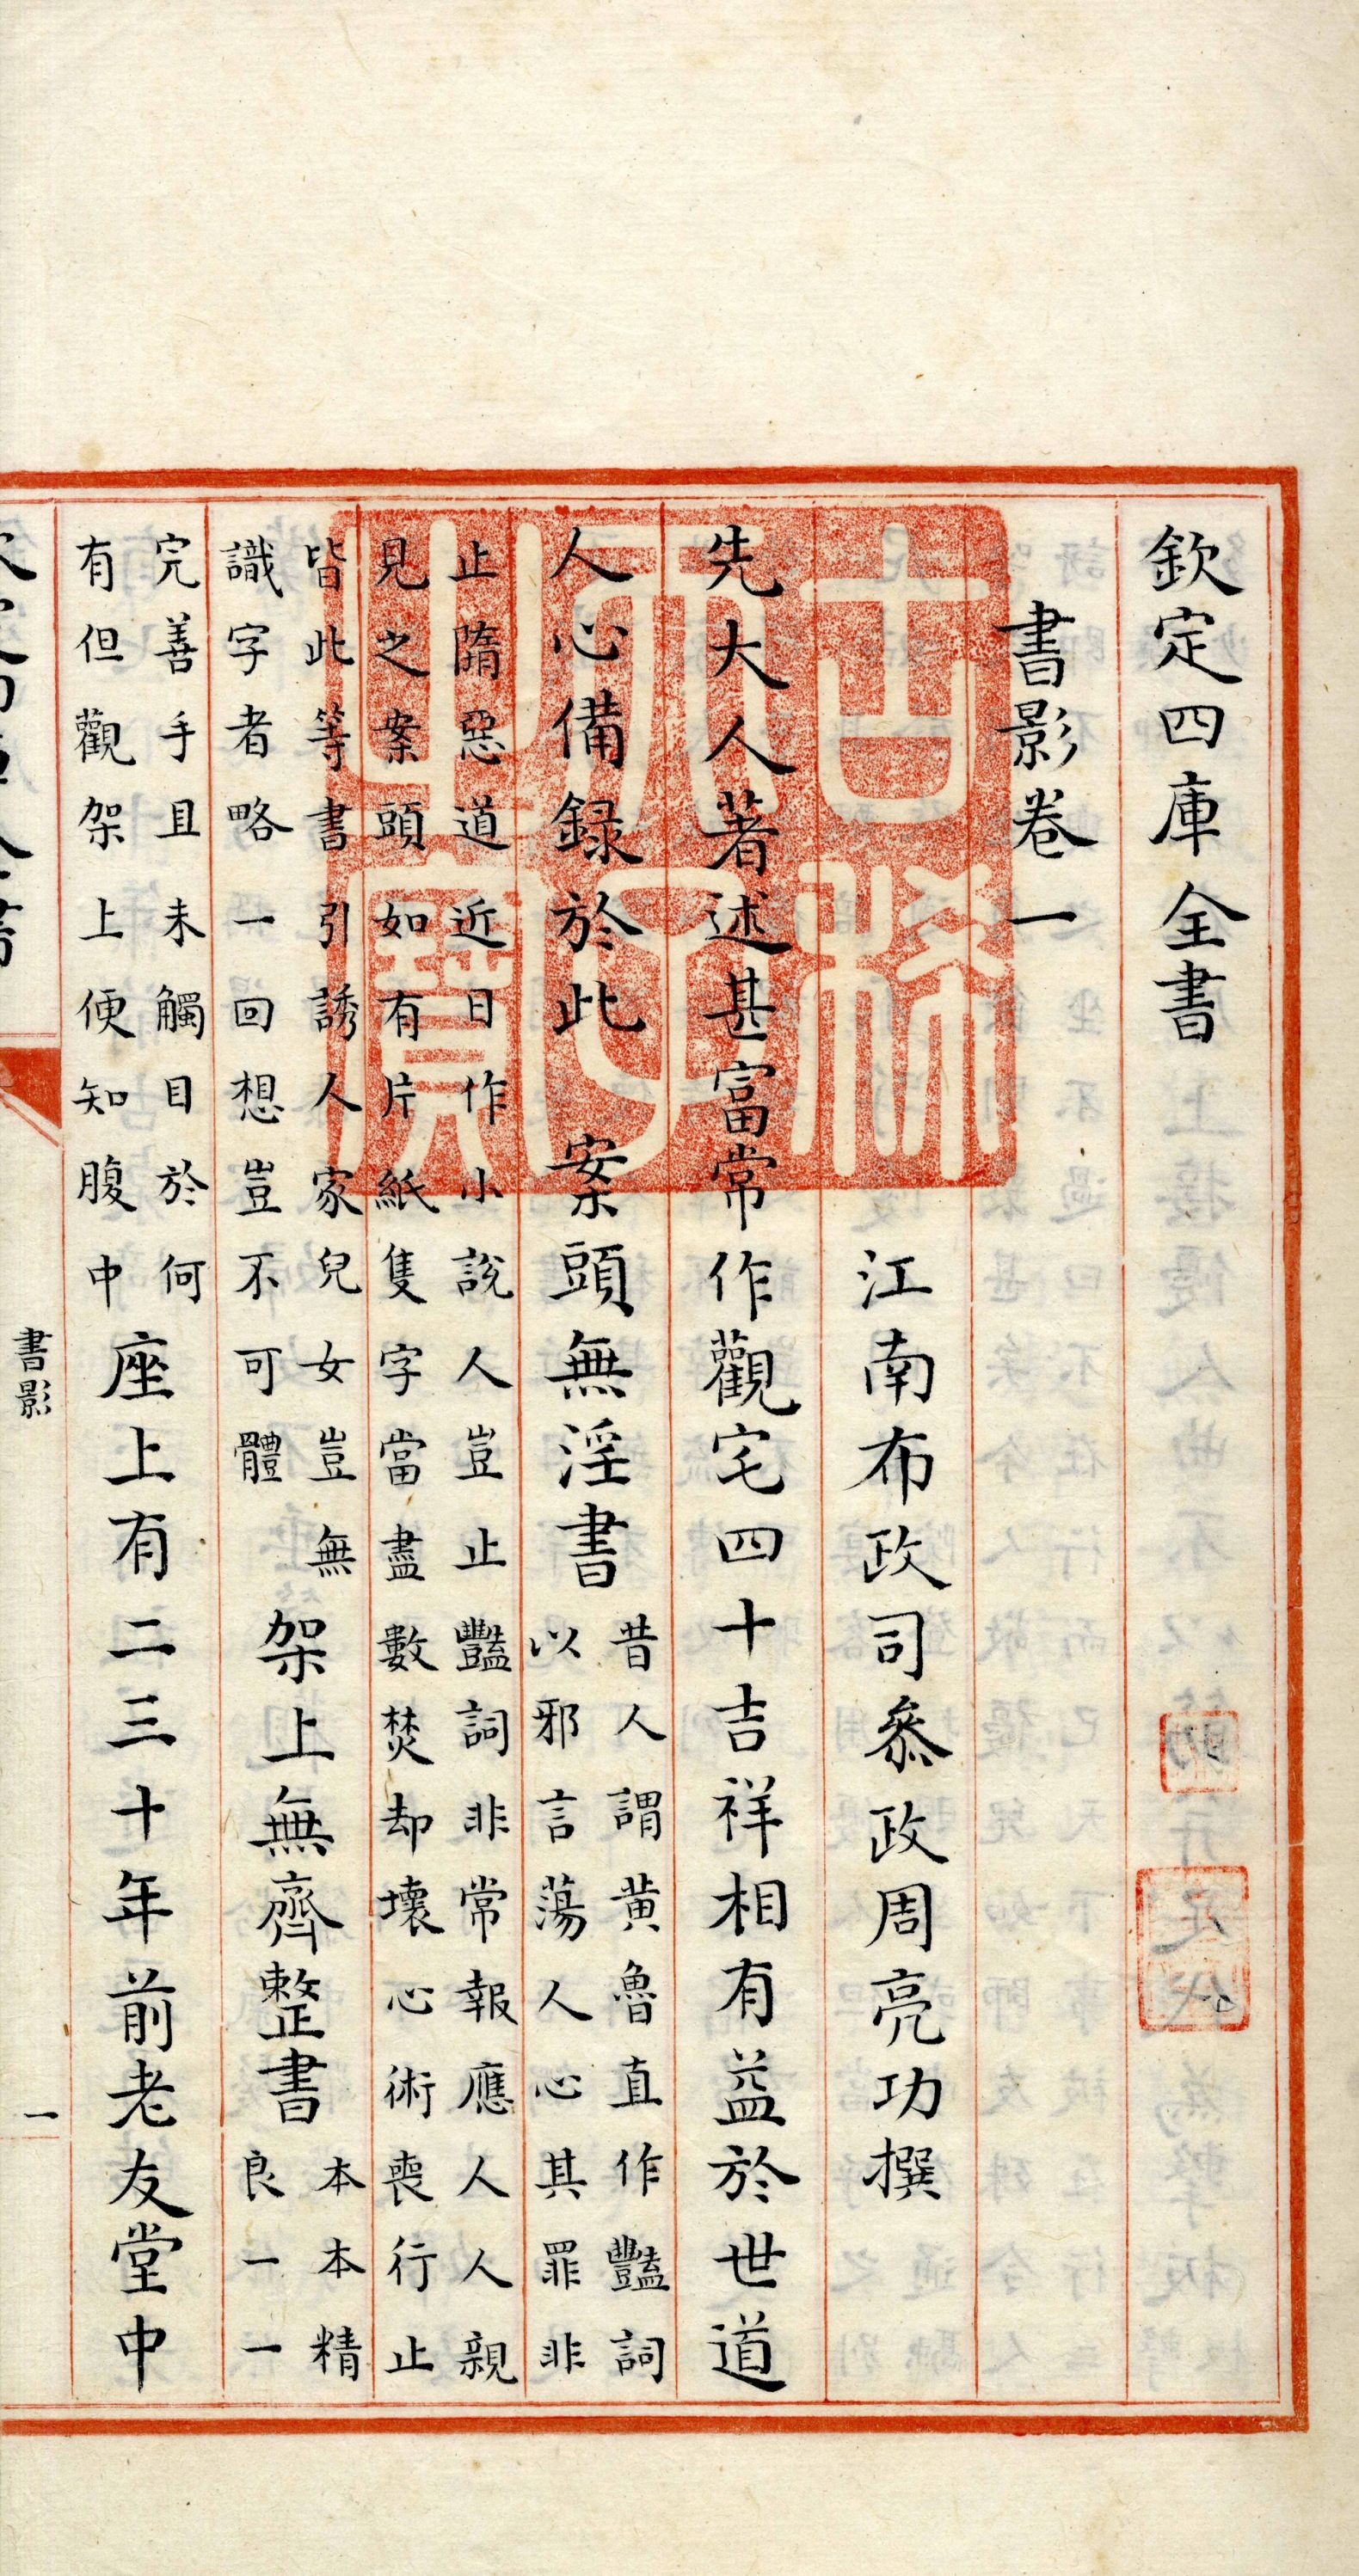 欽定四庫全書
書影卷一
江南布政司叅政周亮功撰
先大人著述甚富常作觀宅四十吉祥相有益於世道
人心備録於此　案頭無淫書
昔人謂黄魯直作豔詞
以邪言蕩人心其罪非
止隋惡道近日作小說人豈止豔詞非常報應人人親
見之案頭如有片紙隻字當盡數焚却壞心術喪行止
皆此等書引誘人家兒女豈無
識字者略一回想豈不可體
架上無齊整書
本本精
良一一
完善手且未觸目於何
有但觀架上便知腹中
座上有二三十年前老友堂中
書影
一
古稀天子之寶